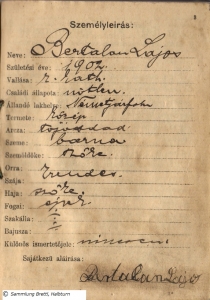 Személyleírás:
Neve: Bertalan Lajos
Születési éve: 1902.
Vallása: r. kath.
Családi állapota: nőtlen
Állandó lakhelye: Németjárfalu
Termete: közép
Arcza: tojásdad
Szeme: barna
Szemöldöke: szőke
Orra: rendes
Szája:
Haja: szőke
Fogai: épek
Szakálla:
Bajusza:
Különös ismertetőjele: nincsen
Sajátkezű aláírása:
Bertalan Lajos
© Sammlung Brettl, Halbturn